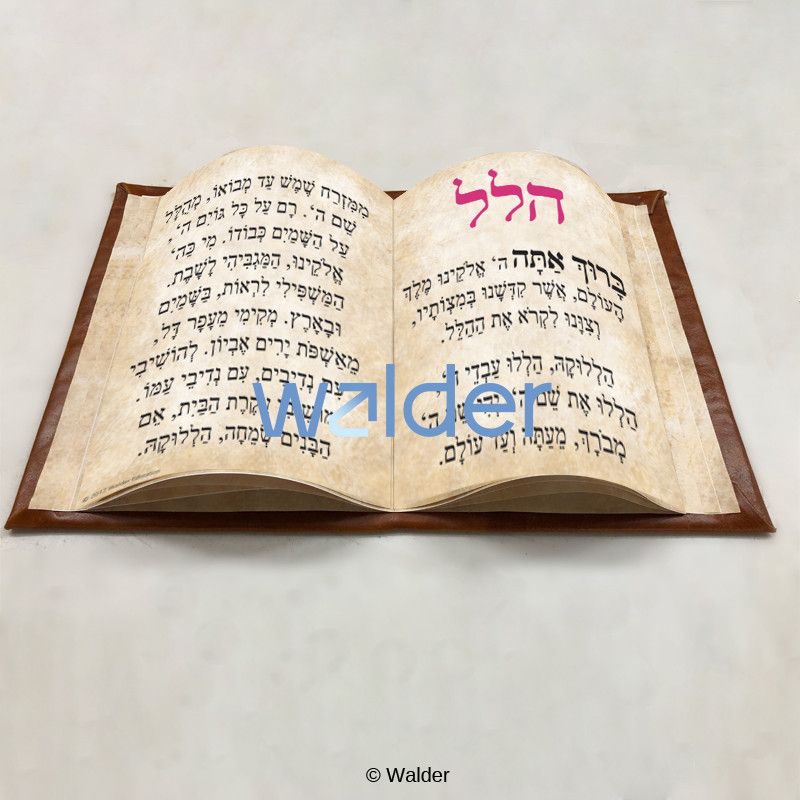 הלל
בָּרוּךְ אַתָּה ה' אֱלֹקֵינוּ מֶלֶךְ
הָעוֹלָם, אֲשֶׁר קִדְּשָׁנוּ בְּמִצְוֹתָיו,
וְצִוָּנוּ לִקְרֹא אֶת הַהַלֵּל.
הַלְלוּקָהּ, הַלְלוּ עַבְדֵי ה'
הַלְלוּ אֶת שֵׁם ה'
מְבֹרָךְ, מֵעַתָּה וְעַד עוֹלָם.
מִמִּזְרַח שֶׁמֶשׁ עַד מְבוֹאוֹ, מְהֻלָּל
שֵׁם ה'. רָם עַל כָּל גּוֹיִם ה'
עַל הַשָּׁמַיִם כְּבוֹדוֹ. מִי כַּה'
אֱלֹקֵינוּ, הַמַּגְבִּיהִי לָשָׁבֶת.
הַמַּשְׁפִּילִי לִרְאוֹת, בַּשָּׁמַיִם
וּבָאָרֶץ. מְקִימִי מֵעָפָר דָּל,
מֵאַשְׁפֹּת יָרִים אֶבְיוֹן. לְהוֹשִׁיבִי
עִם נְדִיבִים, עִם נְדִיבֵי עַמּוֹ.
עֲקֶרֶת הַבַּיִת, אֵם
הַבָּנִים שְׂמֵחָה, הַלְלוּקָהּ.
© 2017 Walder Education
walder
© Walder